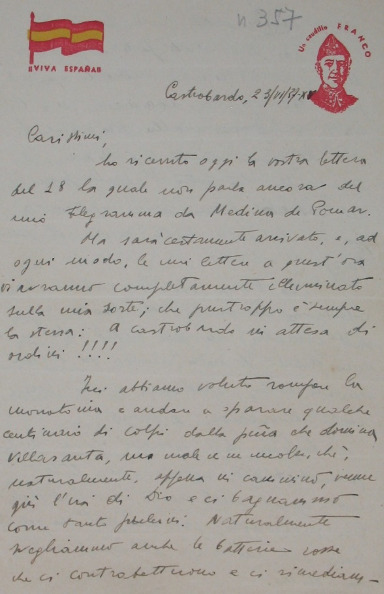 n 357
¡VIVA ESPAÑA!
Un caudillo FRANCO
Castrobardo, 23/VI/37-XV
Carissimi,
ho ricevuto oggi la vostra lettera
del 18 la quale non parla ancora del
mio telegramma da Medina de Pomar.
Ma sarà certamente arrivato, e, ad
ogni modo, le mie lettere a quest'ora
vi avranno completamente illuminato
sulla mia sorte; che purtroppo è sempre
la stessa: A Castrobardo in attesa di
ordini !!!!
Ieri abbiamo voluto rompere la
monotonia e andare a sparare qualche
centinaio di colpi dalla peña che domina
Villasanta, ma male ce ne incolse, chè,
naturalmente, appena in cammino, venne
giù l'ira di Dio e ci bagnammo
come tanti pulcini. Naturalmente
svegliammo anche le batterie rosse
che ci contrabatterono e ci rimediam-